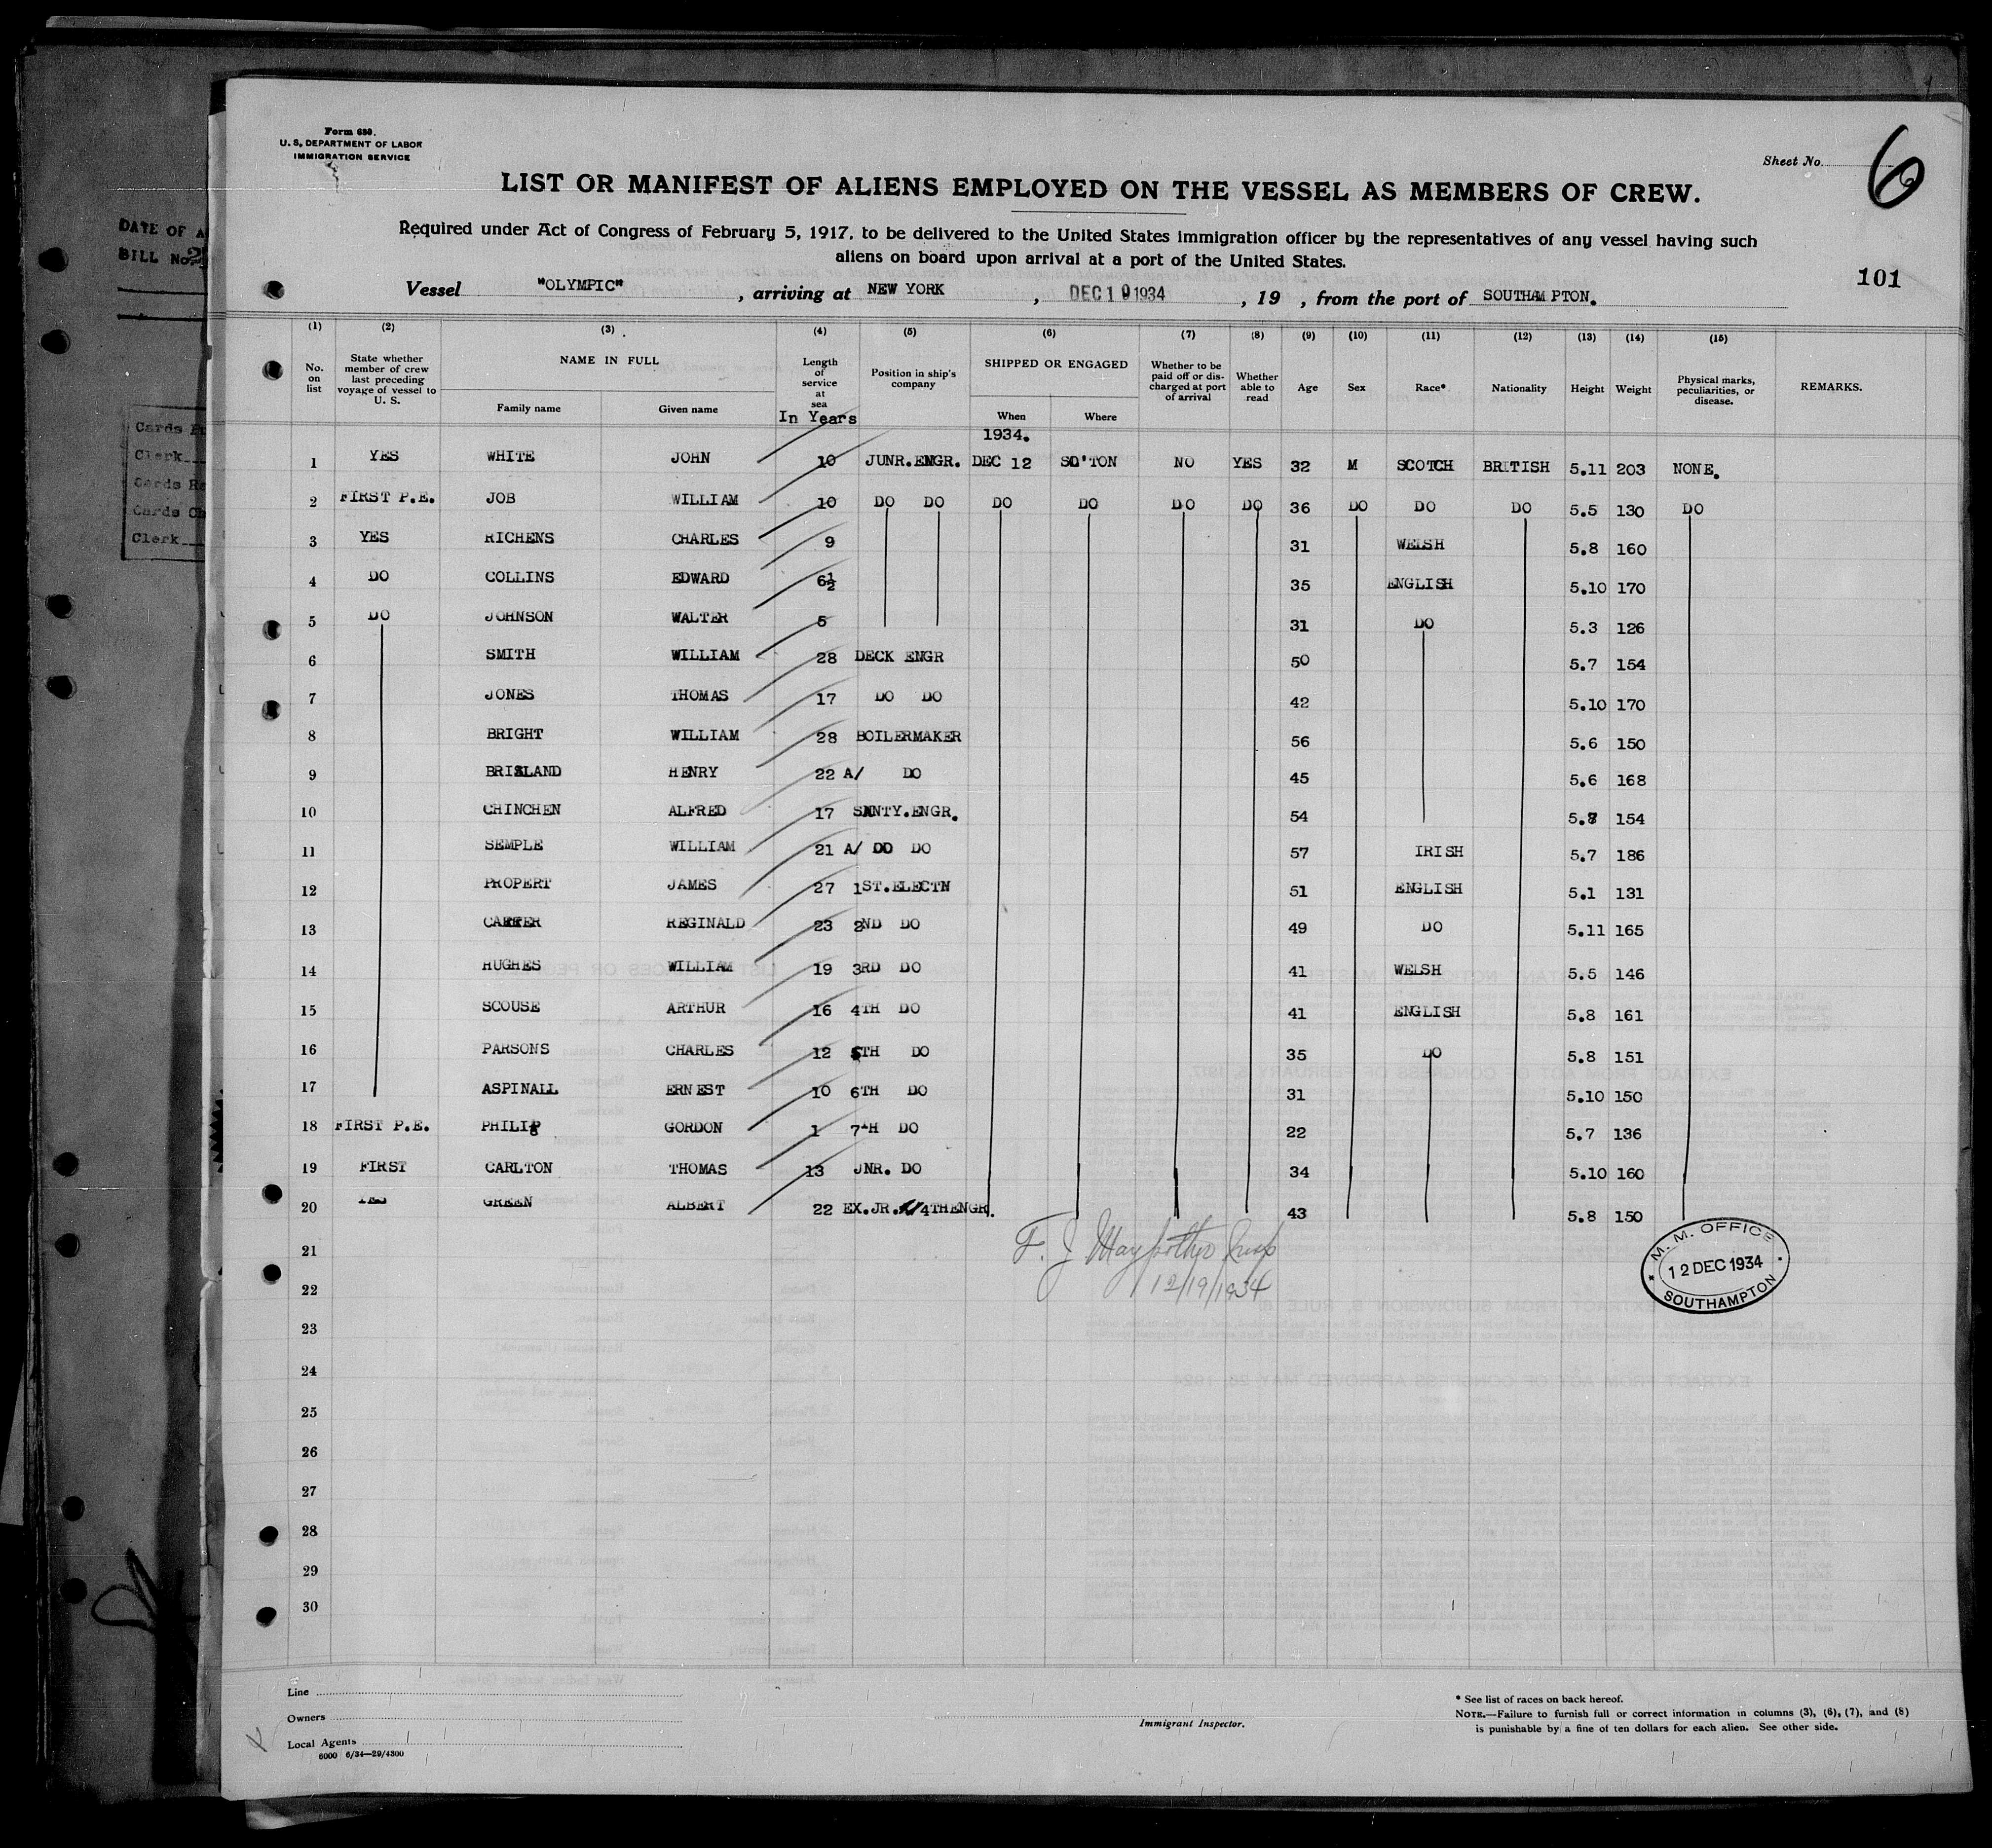 Form 680.
U. S. DEPARTMENT OF LABOR
IMMIGRATION SERVICE
Sheet No. 6
LIST OR MANIFEST OF ALIENS EMPLOYED ON THE VESSEL AS MEMBERS OF CREW.
Required under Act of Congress of February 5, 1917, to be delivered to the United States immigration officer by the representatives of any vessel having such
aliens on board upon arrival at a port of the United States.
101
Vessel "OLYMPIC", arriving at NEW YORK, DEC 19 1934, 19 , from the port of SOUTHAMPTON.
DATE OF
BILL No.
Cards
Clerk
Cards
Cards
Clerk
(1) (2) (3) (4) (5) (6) (7) (8) (9) (10) (11) (12) (13) (14) (15)
No. on list
State whether member of crew last preceding voyage of vessel to U. S.
NAME IN FULL
Family name Given name
Length of service at sea
In Years
Position in ship's company
SHIPPED OR ENGAGED
When Where
1934.
Whether to be paid off or discharged at port of arrival
Whether able to read
Age Sex Race* Nationality Height Weight
Physical marks, peculiarities, or disease.
REMARKS.
1 YES WHITE JOHN 10 JUNR.ENGR. DEC 12 SO'TON NO YES 32 M SCOTCH BRITISH 5.11 203 NONE.
2 FIRST P.E. JOB WILLIAM 10 DO DO DO DO DO DO 36 DO DO DO 5.5 130 DO
3 YES RICHENS CHARLES 9 31 WELSH 5.8 160
4 DO COLLINS EDWARD 6½ 35 ENGLISH 5.10 170
5 DO JOHNSON WALTER 5 31 DO 5.3 126
6 SMITH WILLIAM 28 DECK ENGR 50 5.7 154
7 JONES THOMAS 17 DO DO 42 5.10 170
8 BRIGHT WILLIAM 28 BOILERMAKER 56 5.6 150
9 HENRY 22 A/ DO 45 5.6 168
10 CHINCHEN ALFRED 17 SANTY.ENGR. 54 154
11 SEMPLE WILLIAM 21 A/ DO DO 57 IRISH 5.7 186
12 PROPERT JAMES 27 1ST.ELECTN 51 ENGLISH 5.1 131
13 CARTER REGINALD 23 2ND DO 49 DO 5.11 165
14 HUGHES WILLIAM 19 3RD DO 41 WELSH 5.5 146
15 SCOUSE ARTHUR 16 4TH DO 41 ENGLISH 5.8 161
16 PARSONS CHARLES 12 5TH DO 35 DO 5.8 151
17 ASPINALL ERNEST 10 6TH DO 31 5.10 150
18 FIRST P.E. PHILIP GORDON 1 7TH DO 22 5.7 136
19 FIRST CARLTON THOMAS 13 JNR. DO 34 5.10 160
20 YES GREEN ALBERT 22 EX.JR. 4THENGR. 43 5.8 150
21
22
23
24
25
26
27
28
29
30
F. J
12/19/1934
M. M. OFFICE
12 DEC 1934
SOUTHAMPTON
Line
Owners
Local Agents
6000 6/34—29/4300
Immigrant Inspector.
* See list of races on back hereof.
NOTE.—Failure to furnish full or correct information in columns (3), (6), (7), and (8)
is punishable by a fine of ten dollars for each alien. See other side.